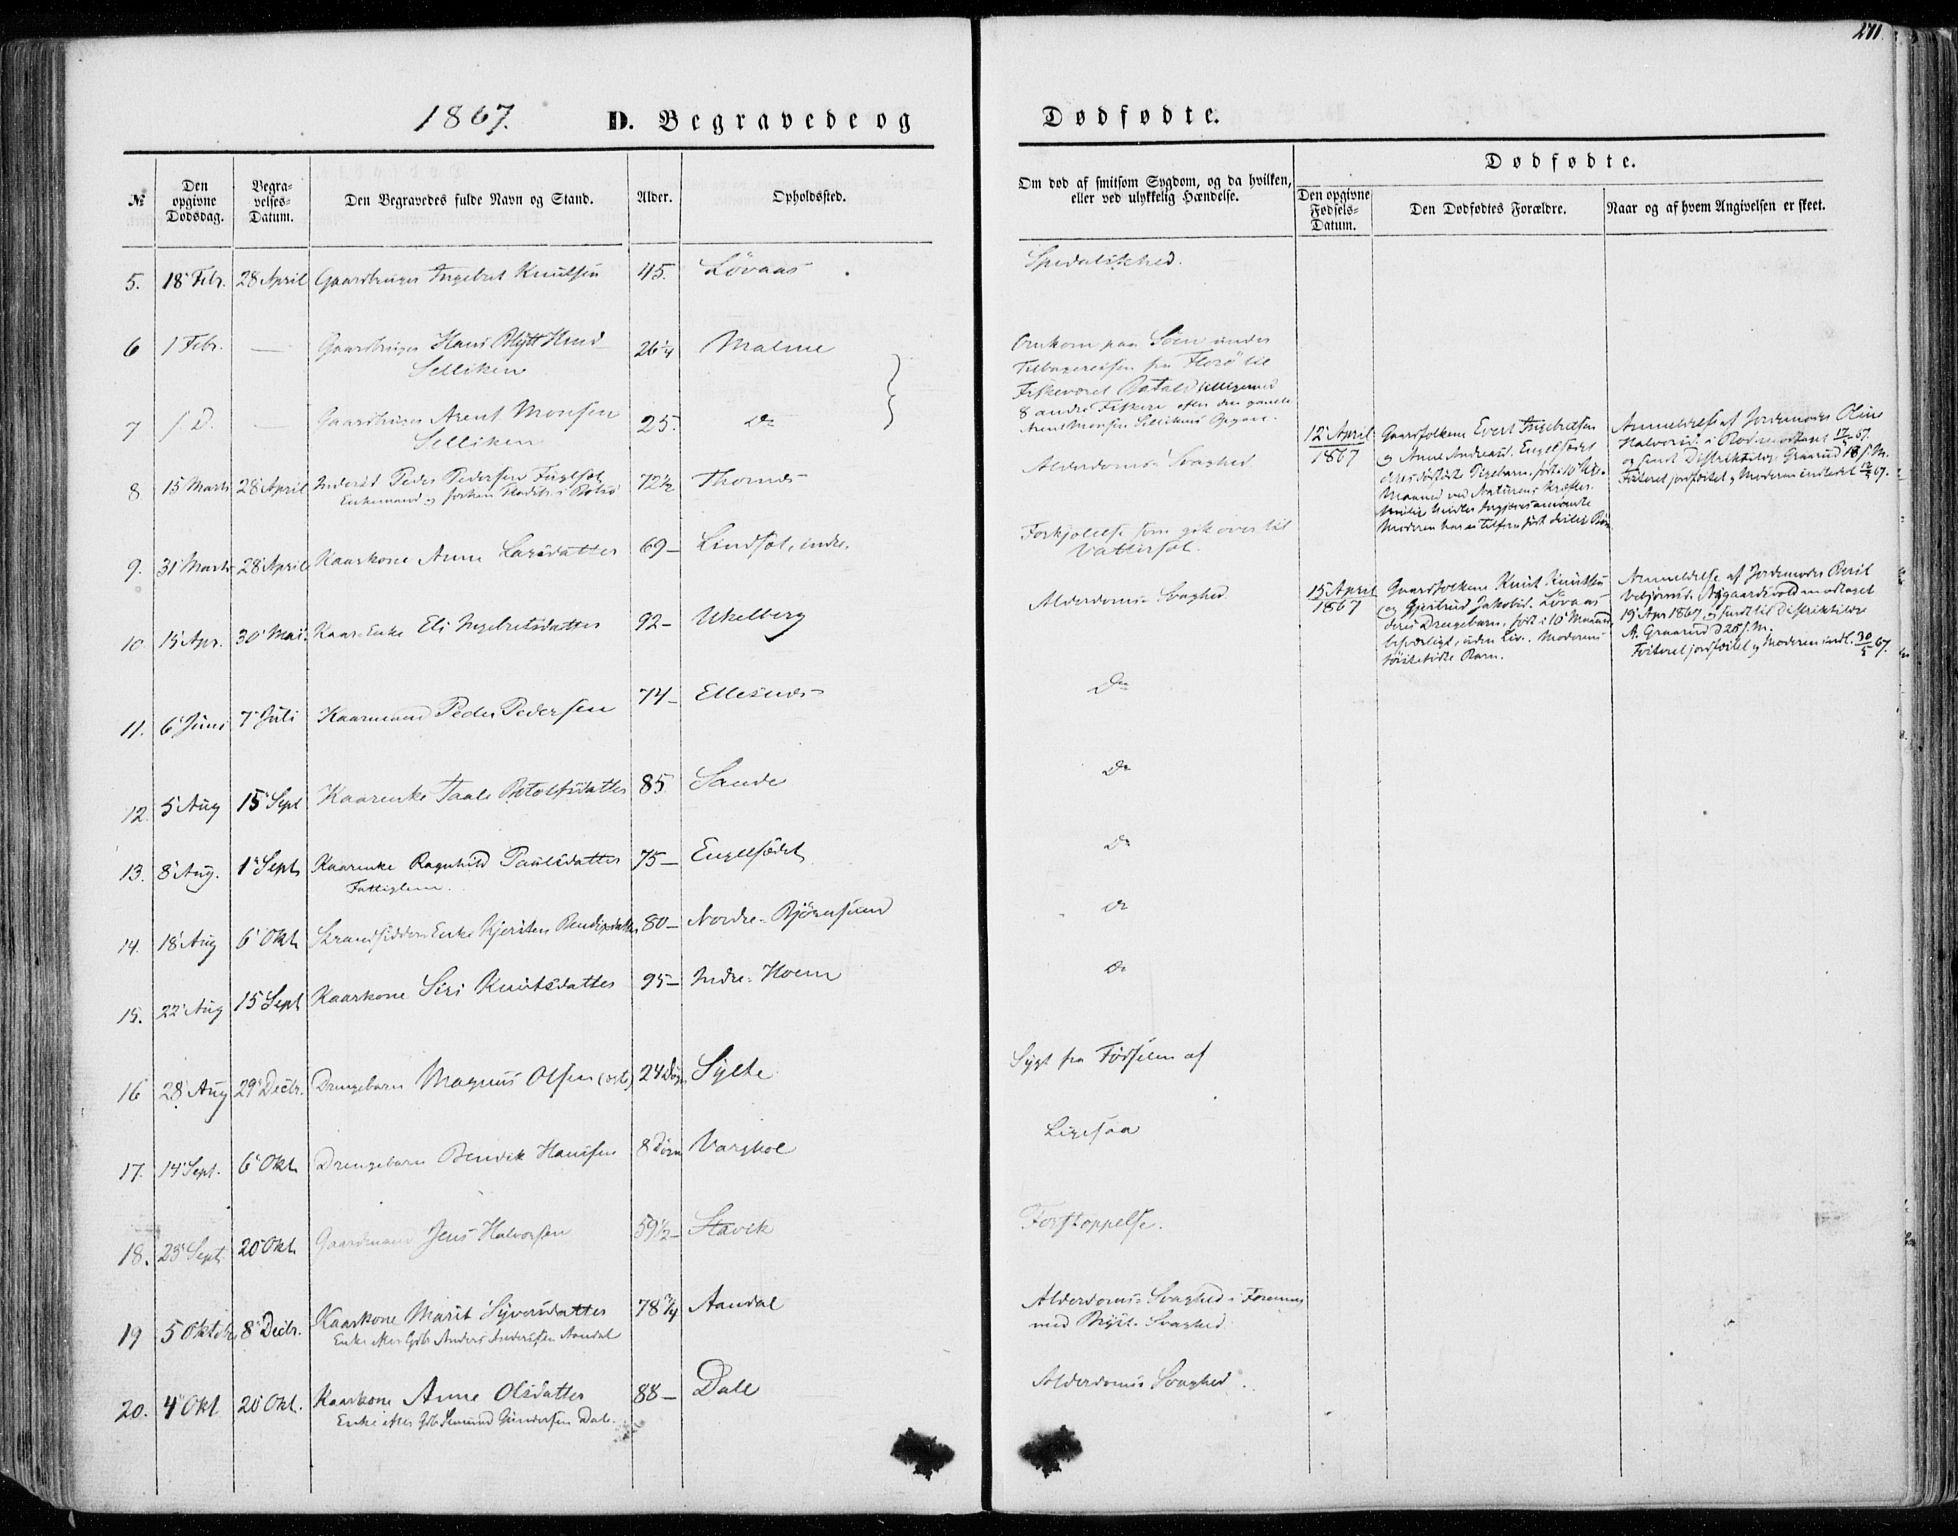 271.
1867. D. Begravede og Dødfødte.
№
Den opgivne Dødsdag.
Begravelses-Datum.
Den Begravedes fulde Navn og Stand.
Alder.
Opholdssted.
Om død af smitsom Sygdom, og da hvilken, eller ved ulykkelig Hændelse.
Dødfødte.
Den opgivne Fødsels-Datum.
Den Dødfødtes Forældre.
Naar og af hvem Angivelsen er skeet.
5. 18 Febr. 28 April Gaardbruger Ingebret Knutsen 45. Løvaas Spedalskhed.
6 1 Febr. — Gaardbruger Hans Blytt 26¼ Malme Omkom paa Søen under
Selliken Tilbagereisen fra Florø til
Fiskeværet Batald tilligemed
7 1 D. — Gaardbruger Arent Monsen 25. Do 8 andre Fiskere efter den gamle
Selliken Arent Monsen Sellikens Opgave.
8 15 Marts 28 April Inderst Peder Pedersen 72½ Thornes Alderdoms Svaghed
Enkemand og forhen
9. 31 Marts 28 April Kaarkone Anne Larsdatter 69 – Lindset, indre. Forkjølelse som gik over til
Vattersot.
10 15 Apr. 30 Mai Kaar-Enke Eli Ingebretsdatter 92 – Ukelberg Alderdoms Svaghed
11. 6 Juni 7 Juli Kaarmand Peder Pedersen 74 – Ellesnes Do
12. 5 Aug 15 Sept Kaarenke Taale Botolfsdatter 85 Sande Do
13. 8 Aug. 1 Sept Kaarenke Ragnhild Paulsdatter 75 – Engelsædet Do
Fattiglem.
14. 18 Aug 6 Okt. Strandsidder-Enke Kjersten Bendixdatter 80 – Nordre-Bjørnsund Do
15. 22 Aug 15 Sept Kaarkone Siri Knutsdatter 95 – Indre-Hoem Do
16 28 Aug 29 Decbr. Drengebarn Magnus Olsen 24 Døgn Sylte Sygt fra Fødselen af
17. 14 Sept. 6 Okt. Drengebarn Bendik Hansen 8 Døgn Varghol Ligesaa
18. 23 Sept 20 Okt Gaardmand Jens Halvorsen 59½ – Stavik Forstoppelse.
19 5 Oktbr 8 Decbr. Kaarkone Marit Syversdatter 78¾ Aandal Alderdoms Svaghed i Forening
Enke efter Gdb Anders Andersen Aandal med Bryst-Svaghed.
20. 4 Okt 20 Okt. Kaarkone Anne Olsdatter 88 – Dale Alderdoms Svaghed.
Enke efter Gdb Gundersen Dale.
12 April 1867
Gaardfolkene Evert Ingebretsen
og Anne Andreasd. Engelsædet
deres dødfødte Pigebarn, født i 10
Maaned ved Naturens Kræfter.
Anmeldelse af Jordemoder Oline
Halvorsd. i Bod modtaget 17/4 67.
og sendt Distriktslæge Graarud 18 s. M.
Fosteret jordfæstet og Moderen indledet
15 April 1867
Gaardfolkene Knut Knutsen
og Gjertrud Jakobsd. Løvaas
deres Drengebarn, født i 10 Maaned
besværligt, uden Liv. Moderens
første Barn.
Anmeldelse af Jordemoder Berit
modtaget
19 Apr 1867, og sendt til Distriktslæge
A. Graarud D 25 s. M.
Fosteret jordfæstet og Moderen indl. 30/5 67.